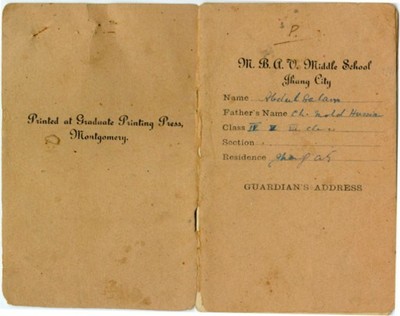 Printed at Graduate Printing Press,
Montgomery.
P.
M. B. A. V. Middle School
Jhang City
Name Abdul Salam
Father's Name Ch. Mohd Hussain
Class IV
Section
Residence Jhang City
GUARDIAN'S ADDRESS